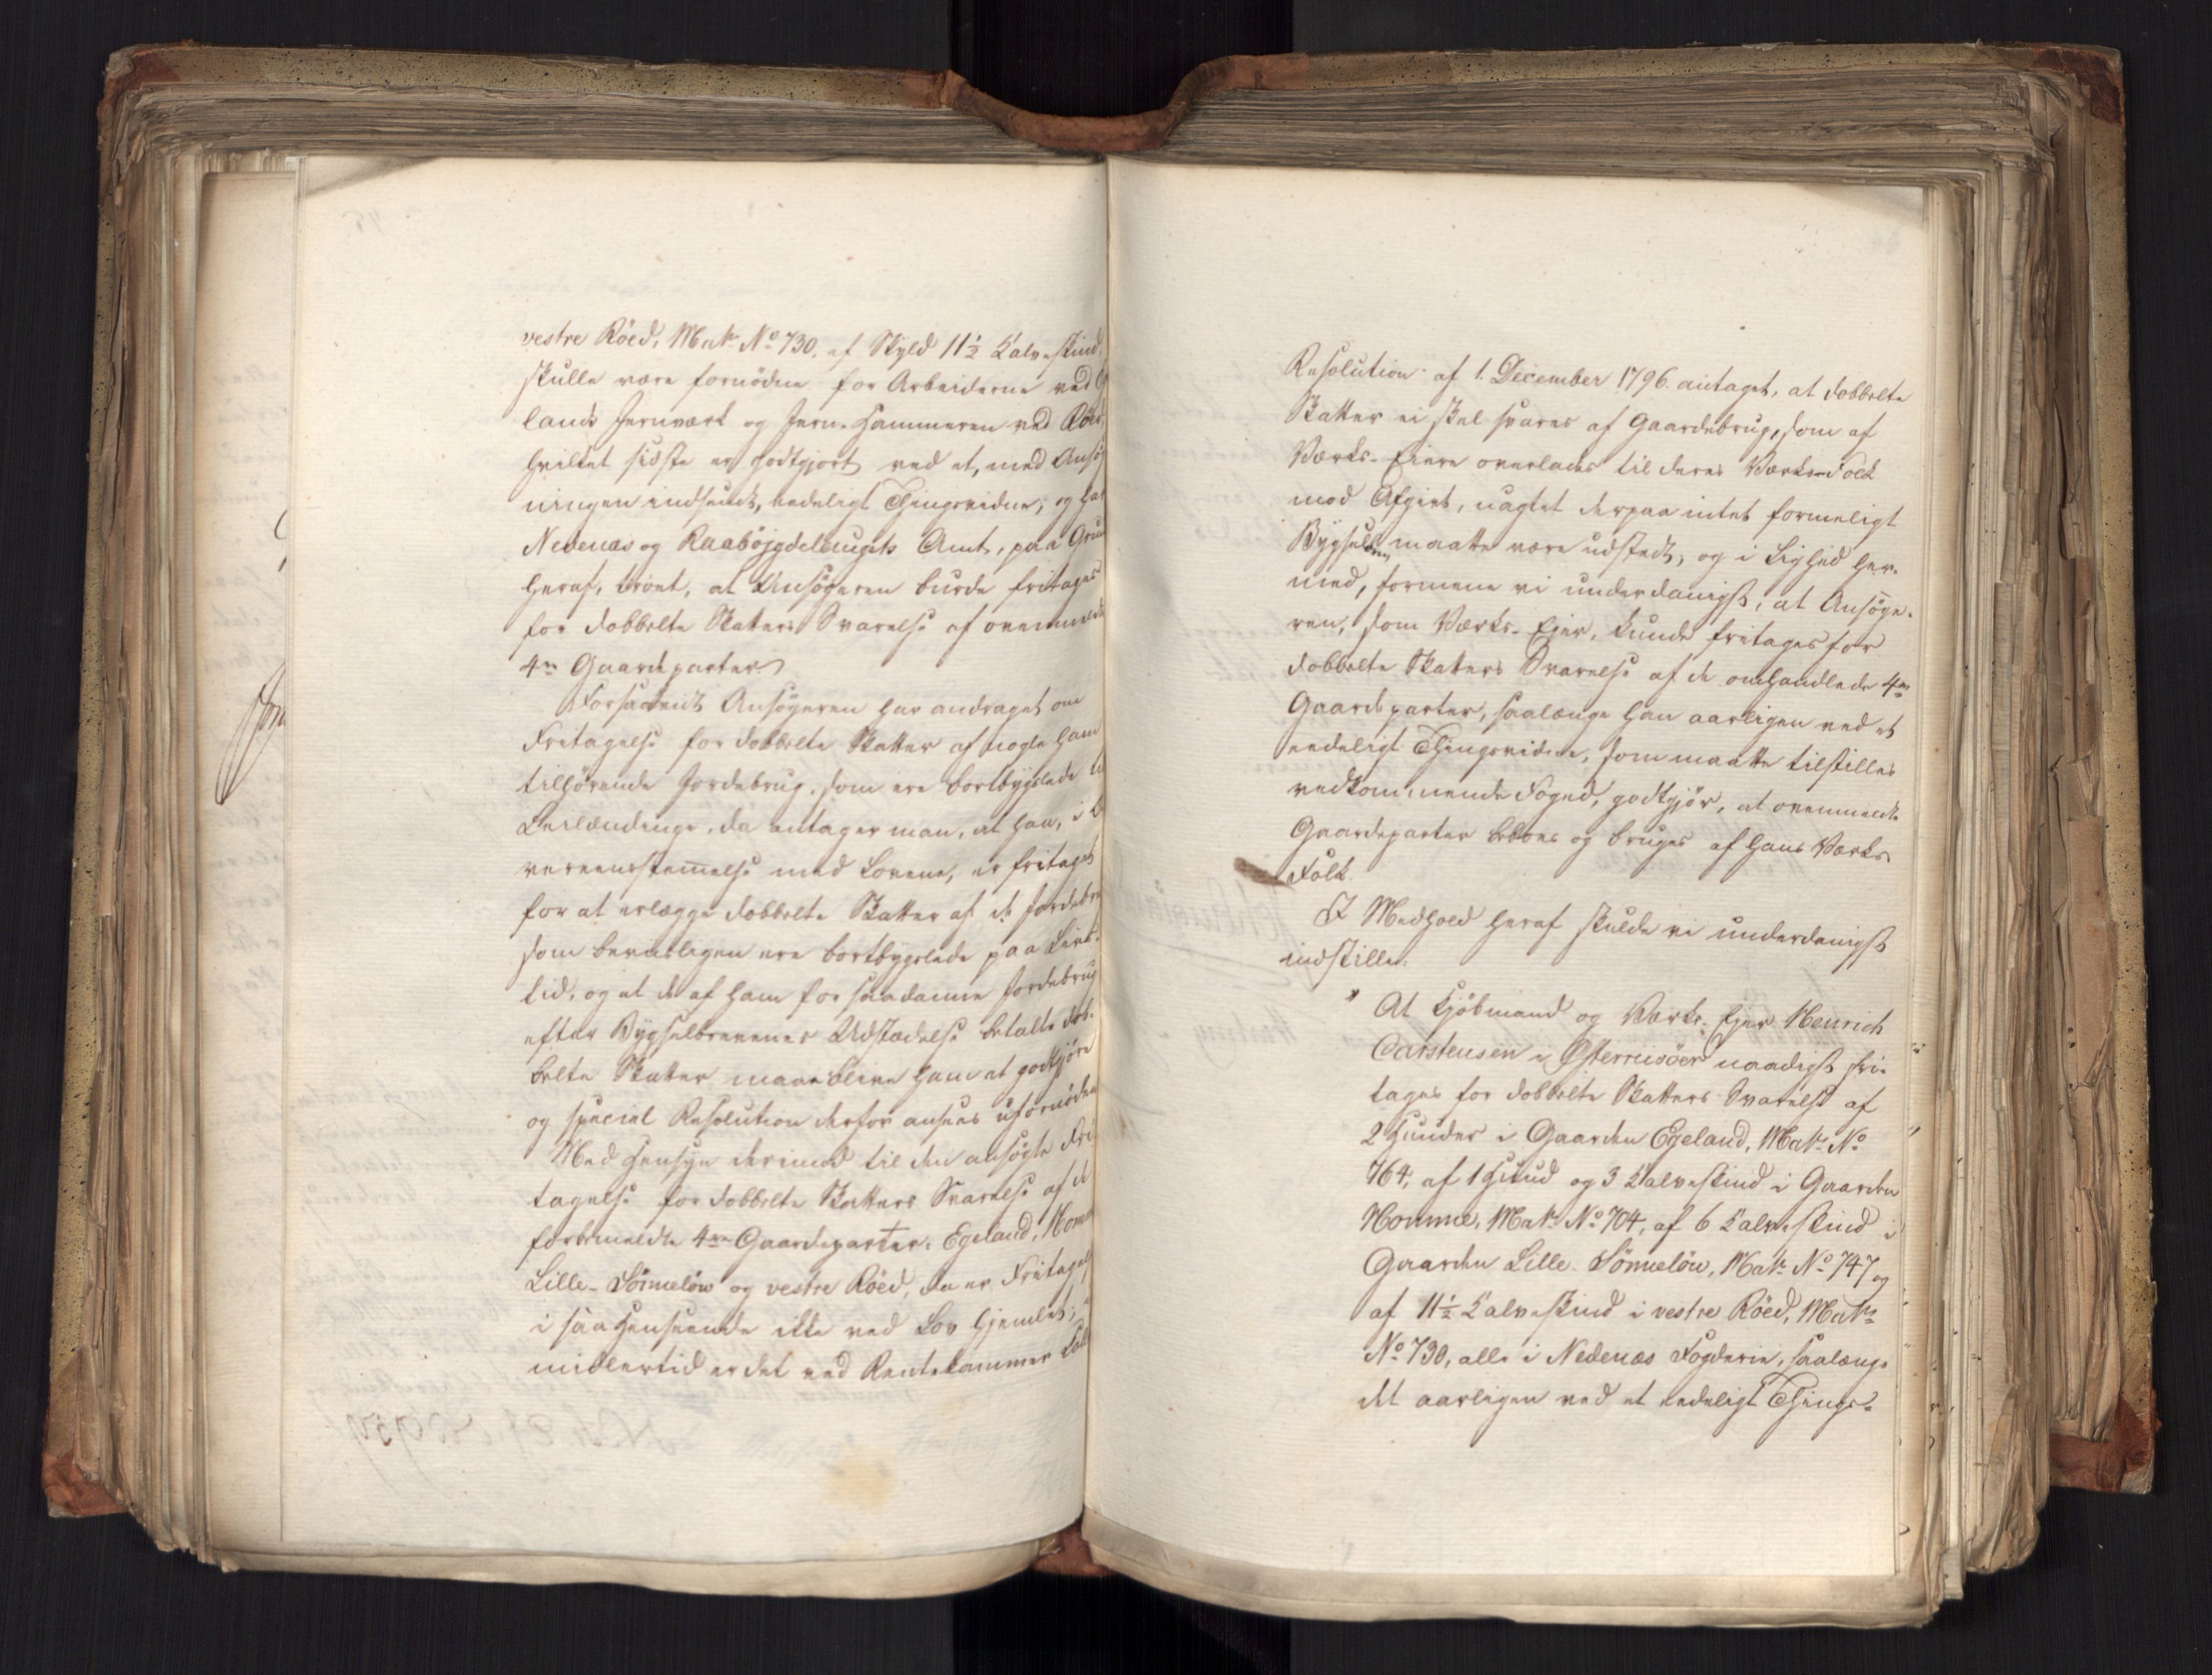 vestre Röed, Matr. No 730, af Skyld 11½ Kalveskind,
skulle være fornödne for Arbeiderne ved
lands Jernværk og Jern-Hammeren ved Röed,
hvilket sidste er godtgjort ved et, med Ansög
ningen indsendt, eedeligt Thingsvidne; og har
Nedenæs og Raaböjgdelaugets Amt, paa Grund
heraf, troet, at Ansögeren burde fritages
for dobbelte Skatters Svarelse af ovenmeldte
4re Gaardeparter.
Forsaavidt Ansögeren har andraget om
Fritagelse for dobbelte Skatter af nogle ham
tilhörende Jordebrug, som ere bortbygslede til
Leilændinge, da antager man, at han, i O
vereensstemmelse med Lovene, er fritaget
for at erlægge dobbelte Skatter af de Jordebrug
som beviisligen ere bortbygslede paa Livs-
tid, og at de af ham for saadanne Jordebrug
efter Bygselbrevenes Udstædelse betalte dob-
belte Skatter maae blive ham at godtgjöre
og special Resolution derfor ansees ufornöden
Med Hensyn derimod til den ansögte Fri
tagelse for dobbelte Skatters Svarelse af de
forbemeldte 4re Gaardeparter: Egeland, Homme
Lille-Sönnelöw og vestre Röed, da er Fritagelse
i saa Henseende ikke ved Lov hjemlet;
midlertid er det ved Rentekammer
Resolution af 1. December 1796. antaget, at dobbelte
Skatter ei skal svares af Gaardebrug, som af
Værks-Eiere overlades til deres Værks-Folk
mod Afgivt, uagtet derpaa intet formeligt
Bygselbrev maatte være udstedt; og i Lighed her-
med, formene vi underdanigst, at Ansöge-
ren, som Værks-Ejer, kunde fritages for
dobbelte Skatters Svarelse af de omhandlede 4re
Gaardeparter, saalænge han aarligen ved et
eedeligt Thingsvidne, som maatte tilstilles
vedkommende Foged, godtgjör, at ovenmeldte
Gaardeparter beboes og bruges af hans Værks-
Folk.
I Medhold heraf skulde vi underdanigst
indstille:
" At Kjöbmand og Værks-Ejer Henrich
Carstensen i Österriisöer naadigst fri-
tages for dobbelte Skatters Svarelse af
2 Huuder i Gaarden Egeland, Matr. No
764, af 1 Huud og 3 Kalveskind i Gaarden
Homme, Matr. No 704, af 6 Kalveskind i
Gaarden Lille-Sönnelöw, Matr. No 747 og
af 11½ Kalveskind i vestre Röed, Matr.
No 730, alle i Nedenæs Fogderie, saalænge
det aarligen ved et eedeligt Things-